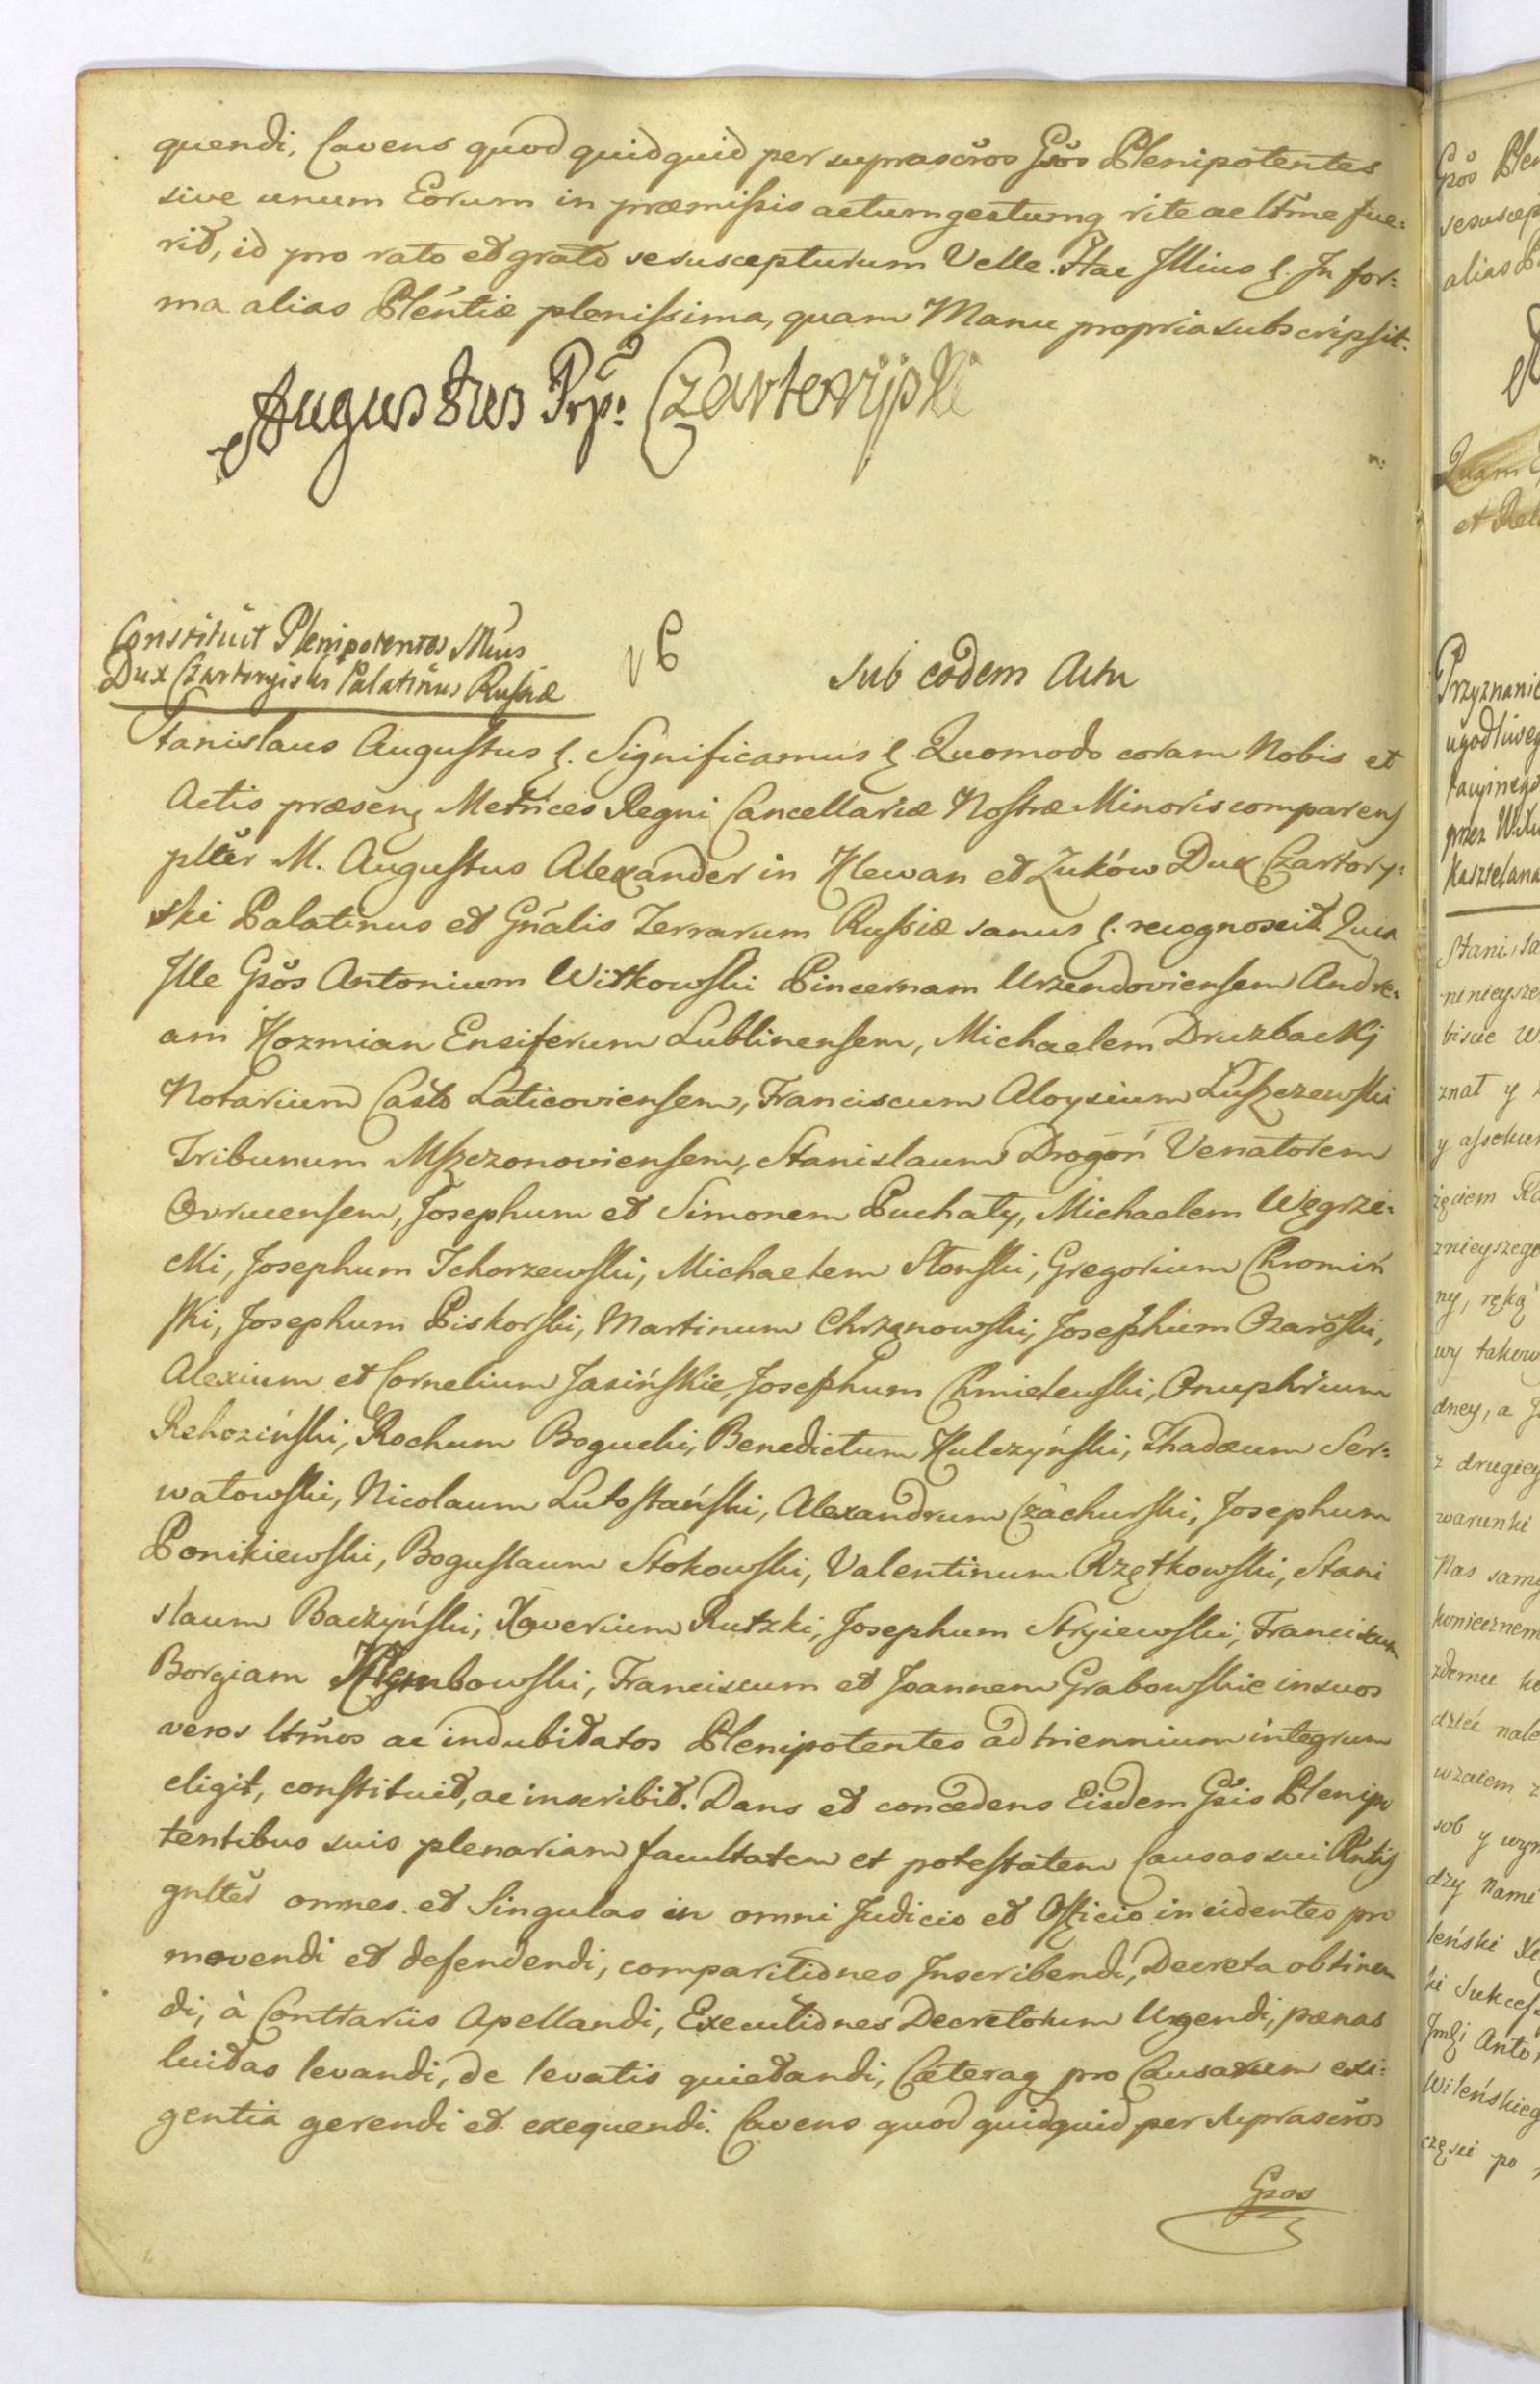 quendi, Cavens quod quidquid per suprascr̃os Gsõs Plenipotentes
sive unum Eorum in præmissis actum gestumq rite ac ltm̃e fue:
rit, id pro rato et grato se suscepturum Velle. Hac Illius &. In for:
ma alias Plen̄tiæ plenissima, quam Manu propria subscripsit.
Augustus Czartoryski
Constituit Plenipotentes Mũus
Dux Czartoryiski Palatinus Russiæ
Sub eodem Actu
Stanislaus Augustus &. Significamus &. Quomodo coram Nobis et
Actis præsen Metrices Regni Cancellariæ Nostræ Minoris comparens
pltĕr M. Augustus Alexander in Klewan et Zuków Dux Czartory:
ski Palatinus et Gnãlis Terrarum Russiæ sanus &. recognoscit Quia
Ille Gsõs Antonium Witkowski Pincernam Urzendoviensem Andre:
am Kozmian Ensiferum Lublinensem, Michaelem Druzbackj
Notarium Casť Laticoviensem, Franciscum Aloysium Luszczewski
Tribunum Mszczonoviensem, Stanislaum Drogoń Venatorem
Ovrucensem, Josephum et Simonem Puchaty, Michaelem Węgrze:
cki, Josephum Tchorzewski, Michaelem Stonski, Gregorium Chromiń
ski, Josephum Piskorski, Martinum Chrzanowski, Josephum Ozaroski,
Alexium et Cornelium Jasińskie, Josephum Chmielewski, Onuphrium
Rehoziński, Rochum Bogucki, Benedictum Hulczyński, Thadæum Ser:
watowski, Nicolaum Lutostański, Alexandrum Czachurski, Josephum
Ponikiewski, Boguslaum Stokowski, Valentinum Rzętkowski, Stani
slaum Baczyński, Xaverium Rutzki, Josephum Stryiewski, Franciscum
Borgiam Franciscum et Joannem Grabowskie in suos
veros ltm̃os ac indubitatos Plenipotentes ad triennium integrum
eligit, constituit, ac inscribit. Dans et concedens Eisdem Gsĩs Plenipo
tentibus suis plenariam facultatem et potestatem Causas sui
gnltĕr omnes et Singulas in omni Judicio et Officio incidentes pro
movendi et defendendi, comparitiones Inscribendi, Decreta obtinen
di, à Contrariis Apellandi, Executiones Decretorum Urgendi, pænas
luitas levandi, de levatis quietandi, Cæteraq pro Causarum exi:
gentia gerendi et exequendi. Cavens quod quidquid per suprascr̃os
Gsos